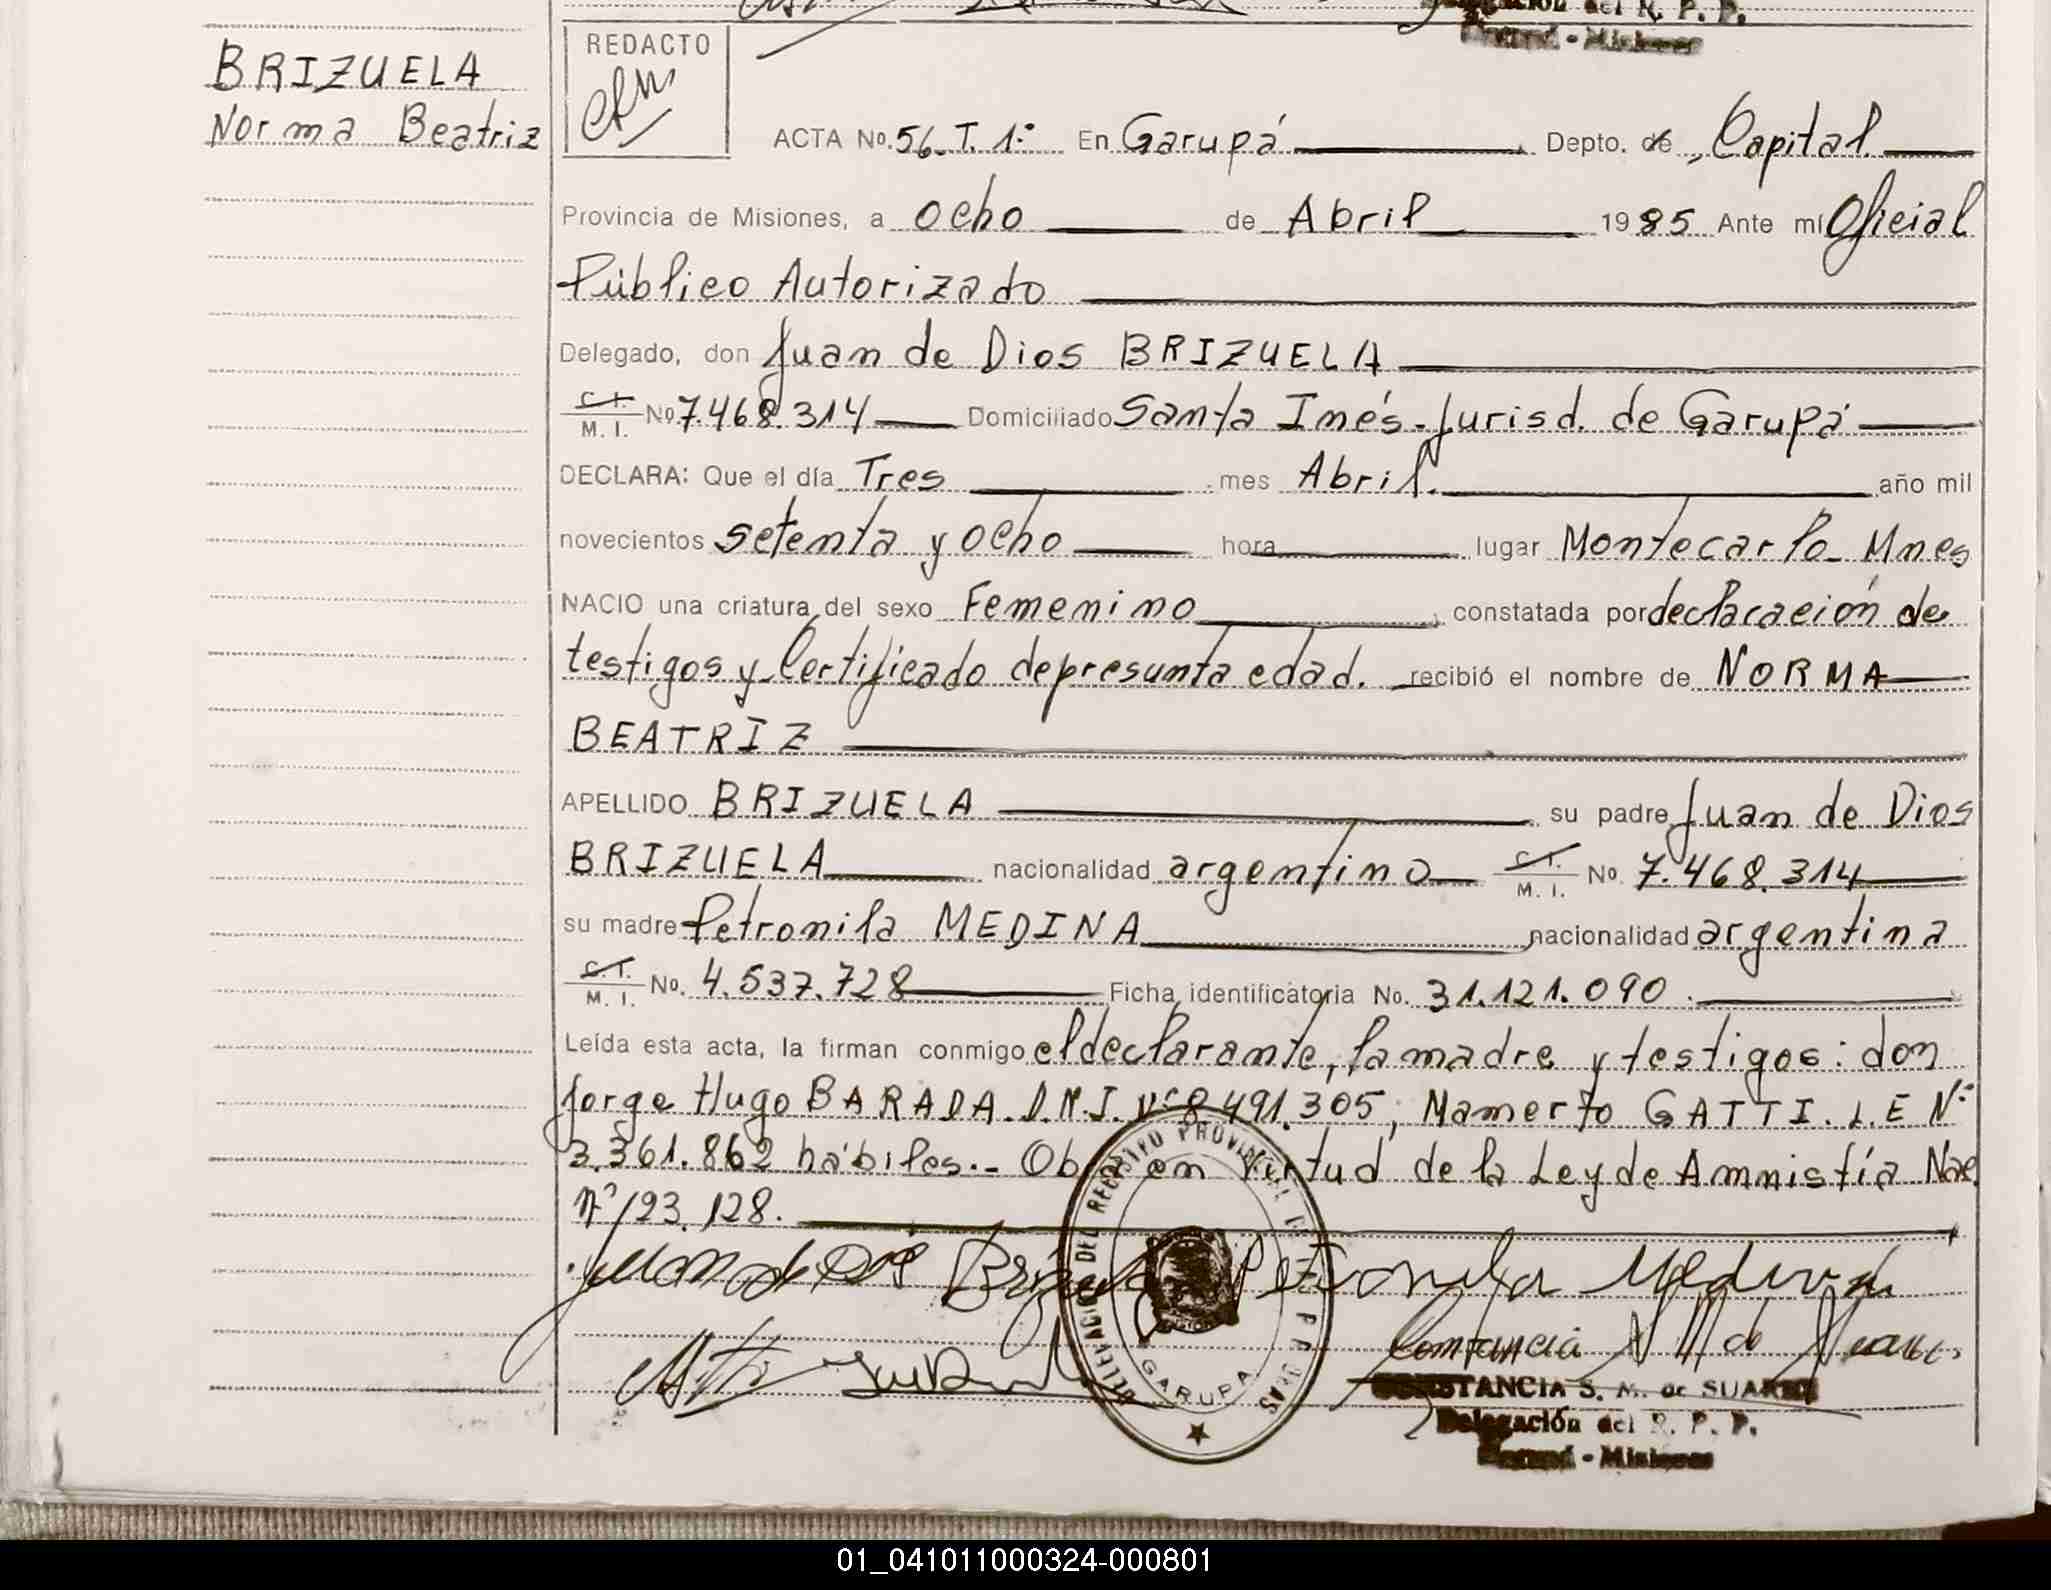 Delegación del R. P. P.
Garupá - Misiones
BRIZUELA
Norma Beatriz
REDACTO
ACTA No. 56_T. 1º En Garupá Depto. de, Capital.
Provincia de Misiones, a ocho de Abril 1985 Ante mí Oficial
Público Autorizado
Delegado, don Juan de Dios BRIZUELA
C. I. M. I. No 7.468.314 Domiciliado Santa Inés. Jurisd. de Garupá
DECLARA: Que el día Tres mes Abril. año mil
novecientos setenta y ocho hora lugar Montecarlo_Mnes
NACIO una criatura del sexo Femenino, constatada por declaración de
testigos y Certificado de presunta edad. recibió el nombre de NORMA
BEATRIZ
APELLIDO BRIZUELA su padre Juan de Dios
BRIZUELA nacionalidad argentino C. I. M. I. No. 7.468.314
su madre Petronila MEDINA nacionalidad argentina
C. I. M. I. No. 4.537.728 Ficha identificatoria No. 31.121.090.
Leída esta acta, la firman conmigo el declarante, la madre y testigos: don
Jorge Hugo BARADA. D.N.I. Nº 8.491.305, Mamerto GATTI. L.E Nº
3.361.862 hábiles.- Obra en virtud de la Ley de Amnistía Nac.
Nº 23.128.
Juan de Dios Brizuela Petronila Medina
DELEGACION DEL REGISTRO PROVINCIAL DE LAS PERSONAS
GARUPA
CONSTANCIA S. M. de SUAREZ
Delegación del R. P. P.
Garupá - Misiones
01_041011000324-000801